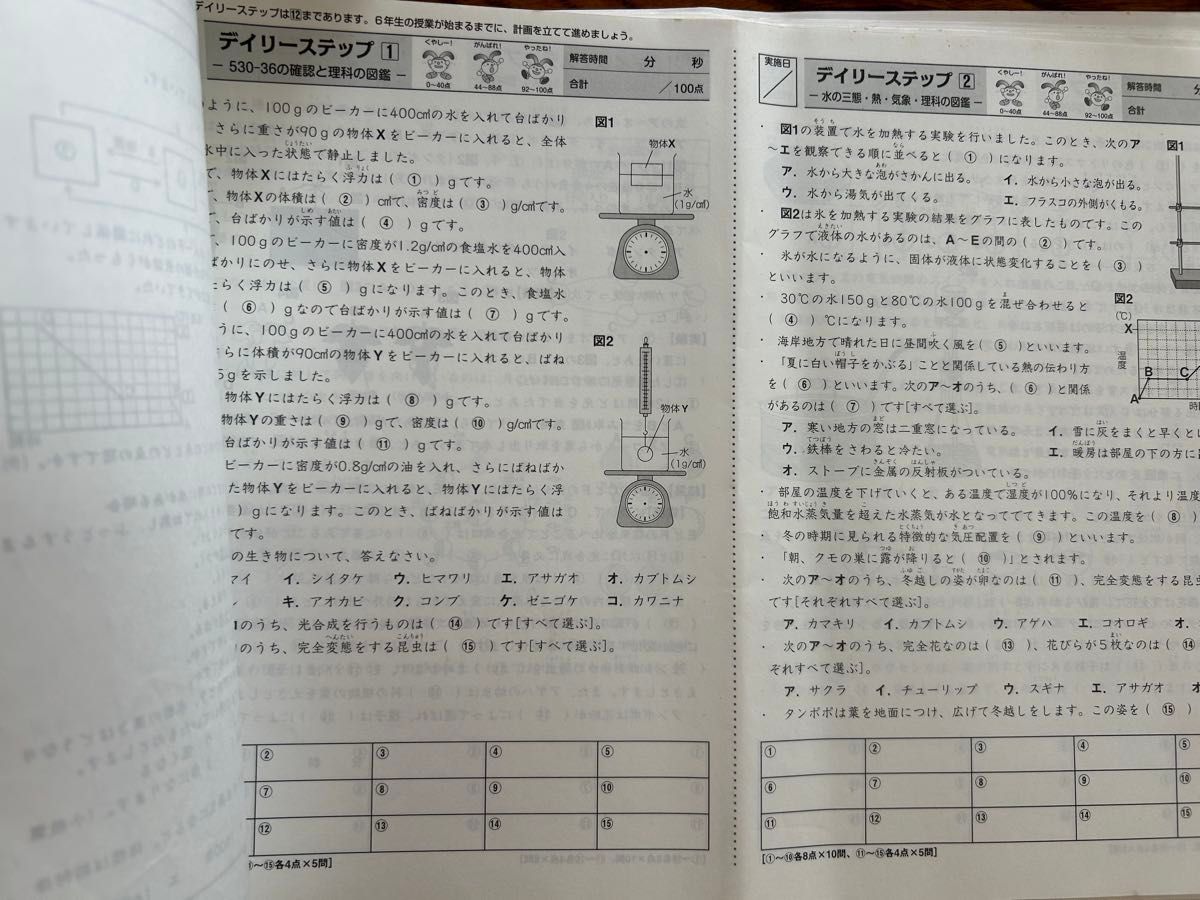 デイリーステップは⑫まであります。6年生の授業が始まるまでに、計画を立てて進めましょう。
デイリーステップ 1
− 530-36の確認と理科の図鑑 −
くやしー! がんばれ! やったね!
0〜40点 44〜88点 92〜100点
解答時間 分 秒
合計 /100点
ように、100gのビーカーに400㎤の水を入れて台ばかり
さらに重さが90gの物体Xをビーカーに入れると、全体
水中に入った状態で静止しました。
で、物体Xにはたらく浮力は( ① )gです。
、物体Xの体積は( ② )㎤で、密度は( ③ )g/㎤です。
、台ばかりが示す値は( ④ )gです。
、100gのビーカーに密度が1.2g/㎤の食塩水を400㎤入
ばかりにのせ、さらに物体Xをビーカーに入れると、物体
たらく浮力は( ⑤ )gになります。このとき、食塩水
( ⑥ )gなので台ばかりが示す値は( ⑦ )gです。
うに、100gのビーカーに400㎤の水を入れて台ばかり
らに体積が90㎤の物体Yをビーカーに入れると、ばね
5gを示しました。
物体Yにはたらく浮力は( ⑧ )gです。
物体Yの重さは( ⑨ )gで、密度は( ⑩ )g/㎤です。
台ばかりが示す値は( ⑪ )gです。
ビーカーに密度が0.8g/㎤の油を入れ、さらにばねばか
た物体Yをビーカーに入れると、物体Yにはたらく浮
)gになります。このとき、ばねばかりが示す値は
です。
の生き物について、答えなさい。
マイ イ. シイタケ ウ. ヒマワリ エ. アサガオ オ. カブトムシ
キ. アオカビ ク. コンブ ケ. ゼニゴケ コ. カワニナ
のうち、光合成を行うものは( ⑭ )です[すべて選ぶ]。
のうち、完全変態をする昆虫は( ⑮ )です[すべて選ぶ]。
図1
物体X
水
(1g/㎤)
図2
物体Y
水
(1g/㎤)
② ③ ④ ⑤
⑦ ⑧ ⑨ ⑩
⑫ ⑬ ⑭ ⑮
〜⑮各4点×5問]
実施日
/
デイリーステップ 2
− 水の三態・熱・気象・理科の図鑑 −
くやしー! がんばれ! やったね!
0〜40点 44〜88点 92〜100点
解答時間 分
合計
・ 図1の装置で水を加熱する実験を行いました。このとき、次のア
〜エを観察できる順に並べると( ① )になります。
ア. 水から大きな泡がさかんに出る。 イ. 水から小さな泡が出る。
ウ. 水から湯気が出てくる。 エ. フラスコの外側がくもる。
・ 図2は氷を加熱する実験の結果をグラフに表したものです。この
グラフで液体の水があるのは、A〜Eの間の( ② )です。
・ 氷が水になるように、固体が液体に状態変化することを( ③ )
といいます。
・ 30℃の水150gと80℃の水100gを混ぜ合わせると
( ④ )℃になります。
・ 海岸地方で晴れた日に昼間吹く風を( ⑤ )といいます。
・ 「夏に白い帽子をかぶる」ことと関係している熱の伝わり方
を( ⑥ )といいます。次のア〜オのうち、( ⑥ )と関係
があるのは( ⑦ )です[すべて選ぶ]。
ア. 寒い地方の窓は二重窓になっている。 イ. 雪に灰をまくと早くと
ウ. 鉄棒をさわると冷たい。 エ. 暖房は部屋の下の方に
オ. ストーブに金属の反射板がついている。
・ 部屋の温度を下げていくと、ある温度で湿度が100%になり、それより温度
飽和水蒸気量を超えた水蒸気が水となってでてきます。この温度を( ⑧ )
・ 冬の時期に見られる特徴的な気圧配置を( ⑨ )といいます。
・ 「朝、クモの巣に露が降りると( ⑩ )」とされます。
・ 次のア〜オのうち、冬越しの姿が卵なのは( ⑪ )、完全変態をする
です[それぞれすべて選ぶ]。
ア. カマキリ イ. カブトムシ ウ. アゲハ エ. コオロギ オ
・ 次のア〜オのうち、完全花なのは( ⑬ )、花びらが5枚なのは( ⑭
ぞれすべて選ぶ]。
ア. サクラ イ. チューリップ ウ. スギナ エ. アサガオ
・ タンポポは葉を地面につけ、広げて冬越しをします。この姿を( ⑮ )
図1
図2
(℃)
X
温度
A B C
時
① ② ③ ④ ⑤
⑥ ⑦ ⑧ ⑨ ⑩
⑪ ⑫ ⑬ ⑭ ⑮
[①〜⑩各8点×10問、⑪〜⑮各4点×5問]